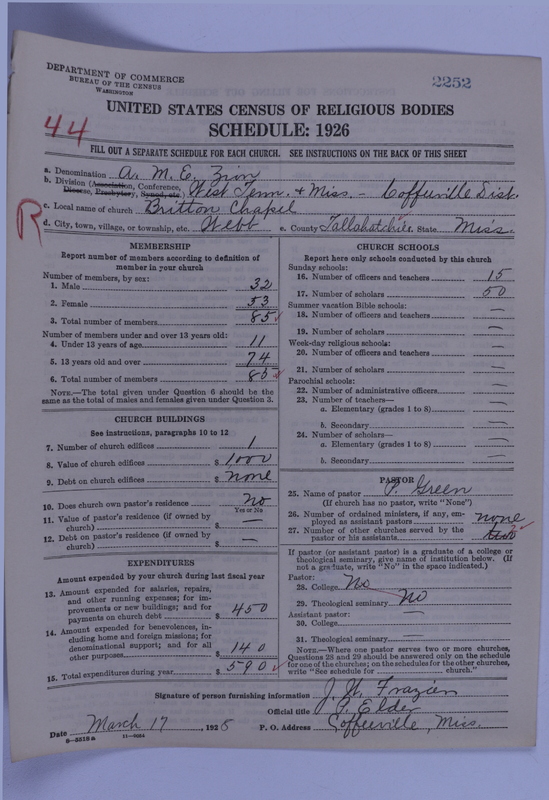 DEPARTMENT OF COMMERCE
BUREAU OF THE CENSUS
WASHINGTON
2252
UNITED STATES CENSUS OF RELIGIOUS BODIES
SCHEDULE: 1926
44
FILL OUT A SEPARATE SCHEDULE FOR EACH CHURCH. SEE INSTRUCTIONS ON THE BACK OF THIS SHEET
R
a. Denomination A. M. E. Zion
b. Division (Association, Conference, Diocese, Presbytery, Synod, etc. West Tenn. & Miss. - Coffeeville Dist.
c. Local name of church Britton Chapel
d. City, town, village, or township, etc. Webb e. County Tallahatchie. State Miss.
MEMBERSHIP
Report number of members according to definition of
member in your church
Number of members, by sex:
1. Male 32
2. Female 53
3. Total number of members 85
Number of members under and over 13 years old:
4. Under 13 years of age 11
5. 13 years old and over 74
6. Total number of members 85
NOTE.—The total given under Question 6 should be
same as the total of males and females given under Question 3.
CHURCH BUILDINGS
See instructions, paragraphs 10 to 12
7. Number of church edifices 1
8. Value of church edifices $ 1000
9. Debt on church edifices $ none
10. Does church own pastor's residence No
Yes or No
11. Value of pastor's residence (if owned by
church) $ —
12. Debt on pastor's residence (if owned by
church) $ —
EXPENDITURES
Amount expended by your church during last fiscal year
13. Amount expended for salaries, repairs,
and other running expenses; for im-
provements or new buildings; and for
payments on church debt $ 450
14. Amount expended for benevolences, in-
cluding home and foreign missions; for
denominational support; and for all
other purposes $ 140
15. Total expenditures during year $ 590
CHURCH SCHOOLS
Report here only schools conducted by this church
Sunday schools:
16. Number of officers and teachers 15
17. Number of scholars 50
Summer vacation Bible schools:
18. Number of officers and teachers —
19. Number of scholars —
Week-day religious schools:
20. Number of officers and teachers —
21. Number of scholars —
Parochial schools:
22. Number of administrative officers —
23. Number of teachers—
a. Elementary (grades 1 to 8) —
b. Secondary —
24. Number of scholars—
a. Elementary (grades 1 to 8) —
b. Secondary —
PASTOR
25. Name of pastor P. Green
(If church has no pastor, write "None")
26. Number of ordained ministers, if any, em-
ployed as assistant pastors none
27. Number of other churches served by the
pastor or his assistants two
If pastor (or assistant pastor) is a graduate of a college or
theological seminary, give name of institution below. (If
not a graduate, write "No" in the space indicated.)
Pastor:
28. College No
29. Theological seminary No
Assistant pastor:
30. College —
31. Theological seminary —
NOTE.—Where one pastor serves two or more churches,
Questions 28 and 29 should be answered only on the schedule
for one of the churches; on the schedules for the other churches,
write "See schedule for church."
Signature of person furnishing information J. W. Frazier
Official title P. Elder
Date March 17, 1928 P. O. Address Coffeeville, Miss.